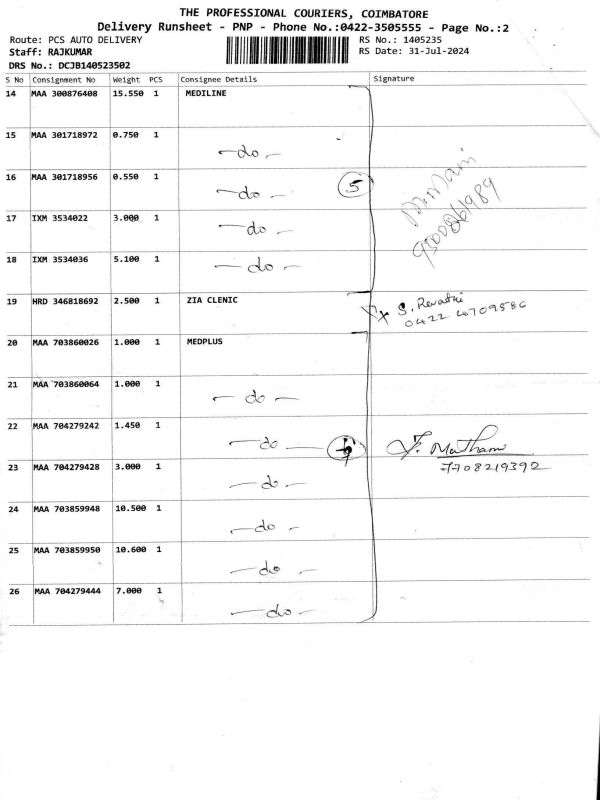 THE PROFESSIONAL COURIERS, COIMBATORE
Delivery Runsheet - PNP - Phone No.:0422-3505555 - Page No.:2
Route: PCS AUTO DELIVERY RS No.: 1405235
Staff: RAJKUMAR RS Date: 31-Jul-2024
DRS No.: DCJB140523502
S No Consignment No Weight PCS Consignee Details Signature
14 MAA 300876408 15.550 1 MEDILINE
15 MAA 301718972 0.750 1
—do—
16 MAA 301718956 0.550 1
—do— 5
17 IXM 3534022 3.000 1
—do—
18 IXM 3534036 5.100 1
—do—
19 HRD 346818692 2.500 1 ZIA CLENIC S. Revathi
0422 4709586
20 MAA 703860026 1.000 1 MEDPLUS
21 MAA 703860064 1.000 1
—do—
22 MAA 704279242 1.450 1
—do—
23 MAA 704279428 3.000 1 7708219392
—do—
24 MAA 703859948 10.500 1
—do—
25 MAA 703859950 10.600 1
—do—
26 MAA 704279444 7.000 1
—do—